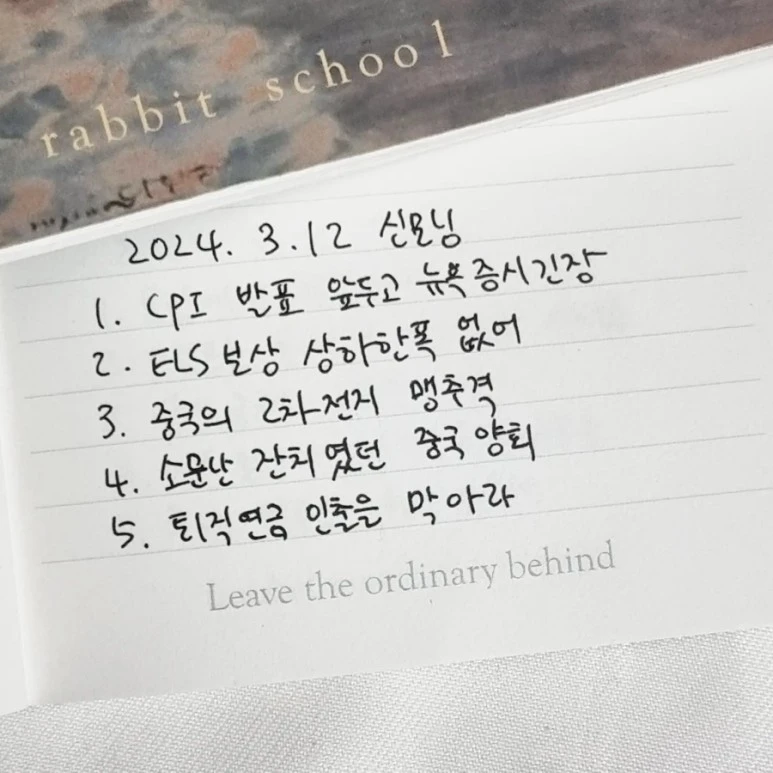 rabbit school
2024. 3.12 신모닝
1. CPI 발표 앞두고 뉴욕증시긴장
2. ELS 보상 상하한폭 없어
3. 중국의 2차전지 맹추격
4. 소문난 잔치였던 중국 양회
5. 퇴직연금 인출을 막아라
Leave the ordinary behind